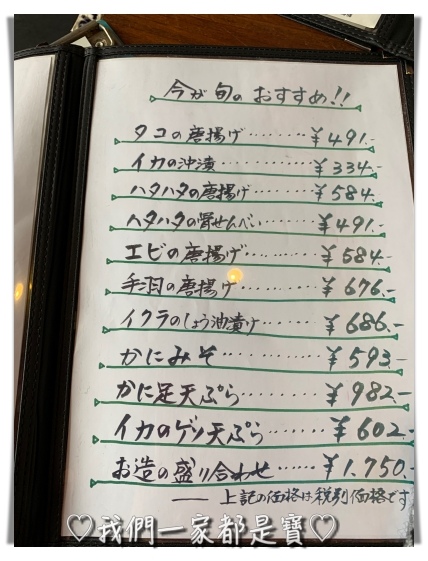 今が旬のおすすめ!!
タコの唐揚げ……… ¥491.-
イカの沖漬………… ¥334.-
ハタハタの唐揚げ……… ¥584.-
ハタハタの骨せんべい…… ¥491.-
エビの唐揚げ……… ¥584.-
手羽の唐揚げ……… ¥676.-
イクラのしょう油漬け…… ¥686.-
かにみそ………… ¥593.-
かに足天ぷら……… ¥982.-
イカのゲソ天ぷら…… ¥602.-
お造の盛り合わせ…… ¥1.750.-
—— 上記の価格は税別価格です
♡我們一家都是寶♡